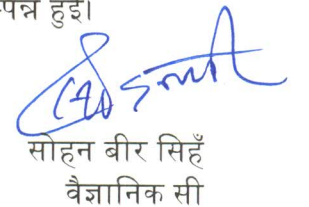 पन्न हुई।
सोहन बीर सिहँ
वैज्ञानिक सी